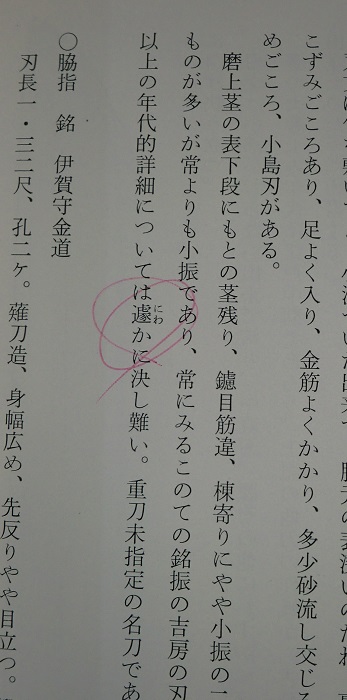 こずみごころあり、足よく入り、金筋よくかかり、多少砂流し交じ
めごころ、小島刃がある。
磨上茎の表下段にもとの茎残り、鑢目筋違、棟寄りにやや小振の
ものが多いが常よりも小振であり、常にみるこのての銘振の吉房の刃
以上の年代的詳細については遽かに決し難い。重刀未指定の名刀であ
にわ
〇脇指　銘　伊賀守金道
刃長一・三二尺、孔二ケ。薙刀造、身幅広め、先反りやや目立つ。